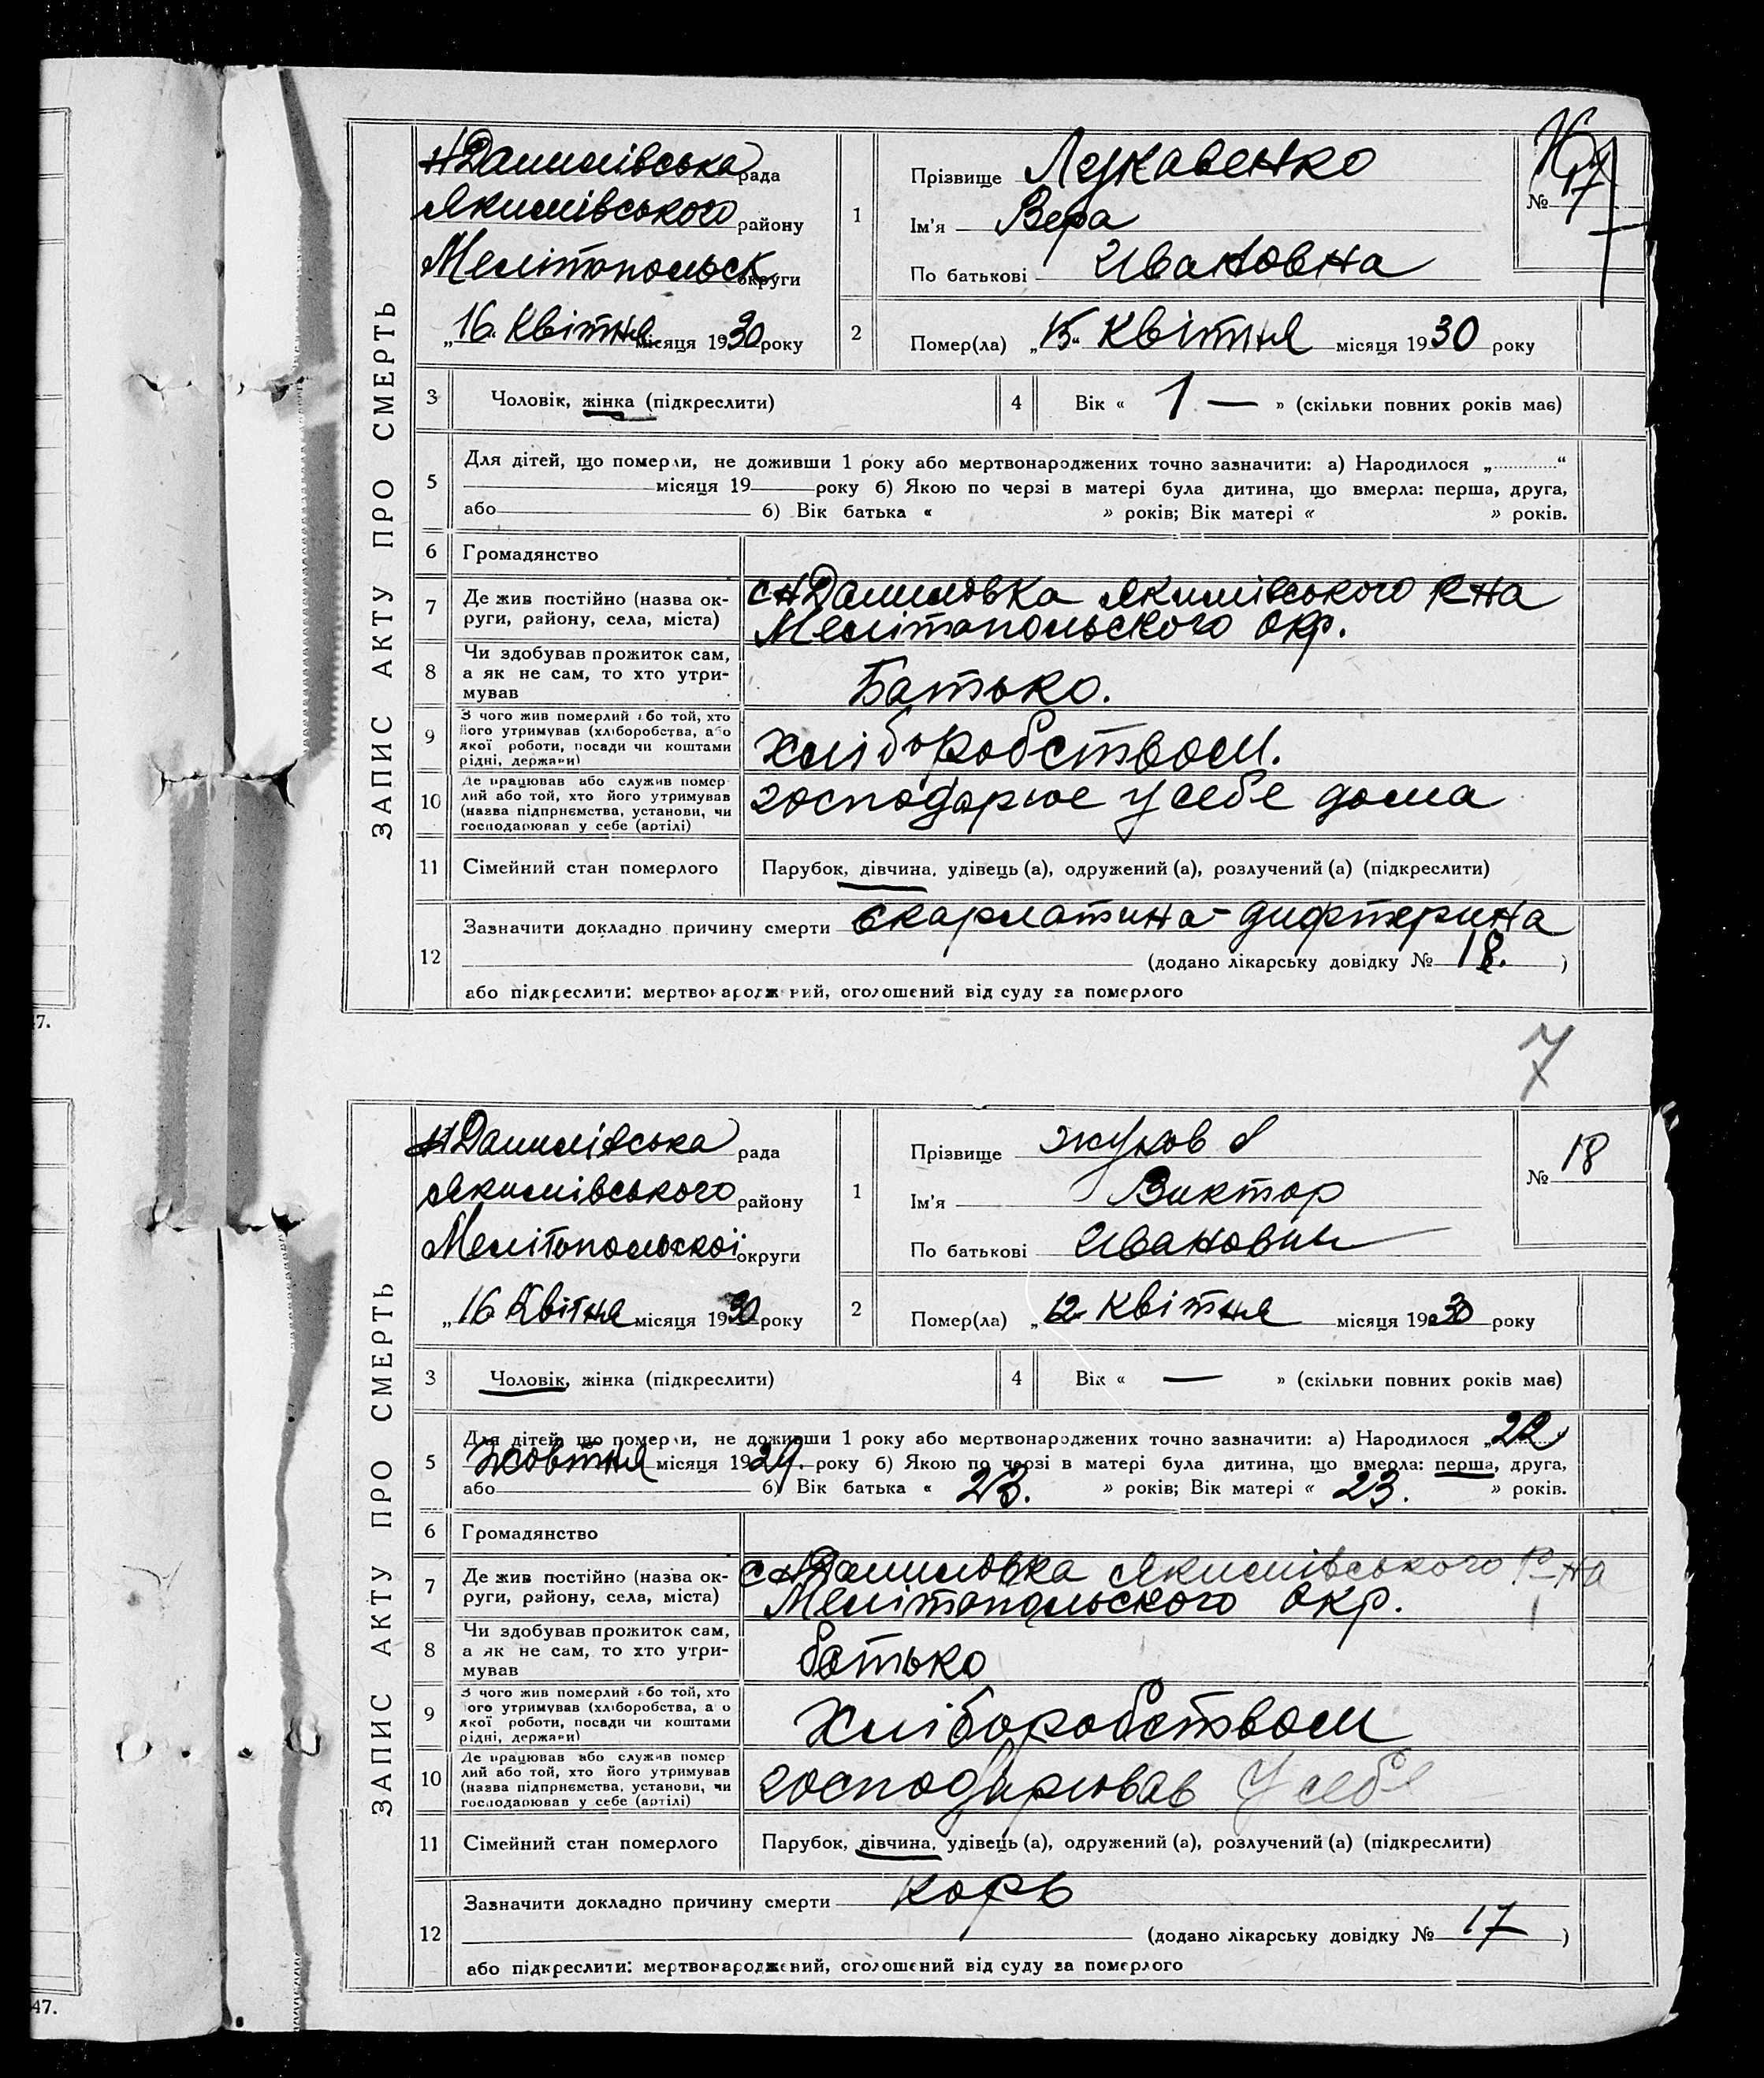 ЗАПИС АКТУ ПРО СМЕРТЬ
Н Данилівська рада
Якимівського району
Мелітопольськ округи
„16" Квітня місяця 1930 року
1
Прізвище Лукавенко
Ім'я Вера
По батькові Ивановна
№ 17
2
Помер(ла) „15" Квітня місяця 1930 року
3 Чоловік, жінка (підкреслити)
4 Вік « 1 — » (скільки повних років має)
5 Для дітей, що померли, не доживши 1 року або мертвонароджених точно зазначити: а) Народилося „ “
місяця 19 року б) Якою по черзі в матері була дитина, що вмерла: перша, друга,
або б) Вік батька « » років; Вік матері « » років.
6 Громадянство
7 Де жив постійно (назва ок-
руги, району, села, міста)
с Н Даниловка Якимівського Р-на
Мелітопольського окр.
8 Чи здобував прожиток сам,
а як не сам, то хто утри-
мував
Батько.
9 З чого жив померлий або той, хто
його утримував (хліборобства, або
якої роботи, посади чи коштами
рідні, держави)
хліборобством.
10 Де працював або служив помер
лий або той, хто його утримував
(назва підприємства, установи, чи
господарював у себе (артілі)
господарює у себе дома
11 Сімейний стан померлого
Парубок, дівчина, удівець (а), одружений (а), розлучений (а) (підкреслити)
12 Зазначити докладно причину смерти скарлатина-дифтерина
(додано лікарську довідку № 18. )
або підкреслити: мертвонароджений, оголошений від суду за померлого
47.
7
ЗАПИС АКТУ ПРО СМЕРТЬ
Н Данилівська рада
Якимівського району
Мелітопольскої округи
„16 Квітня місяця 1930 року
1
Прізвище Жуков
Ім'я Виктор
По батькові Иванович
№ 18
2
Помер(ла) „12" Квітня місяця 1930 року
3 Чоловік, жінка (підкреслити)
4 Вік « — » (скільки повних років має)
5 Для дітей, що померли, не доживши 1 року або мертвонароджених точно зазначити: а) Народилося „22
Жовтня місяця 1929. року б) Якою по черзі в матері була дитина, що вмерла: перша, друга,
або б) Вік батька « 23. » років; Вік матері « 23. » років.
6 Громадянство
7 Де жив постійно (назва ок-
руги, району, села, міста)
с Н Даниловка Якимівського Р-на
Мелітопольського окр.
8 Чи здобував прожиток сам,
а як не сам, то хто утри-
мував
батько
9 З чого жив померлий або той, хто
його утримував (хліборобства, або
якої роботи, посади чи коштами
рідні, держави)
Хліборобством
10 Де працював або служив помер
лий або той, хто його утримував
(назва підприємства, установи, чи
господарював у себе (артілі)
господарював у себе
11 Сімейний стан померлого
Парубок, дівчина, удівець (а), одружений (а), розлучений (а) (підкреслити)
12 Зазначити докладно причину смерти корь
(додано лікарську довідку № 17 )
або підкреслити: мертвонароджений, оголошений від суду за померлого
47.